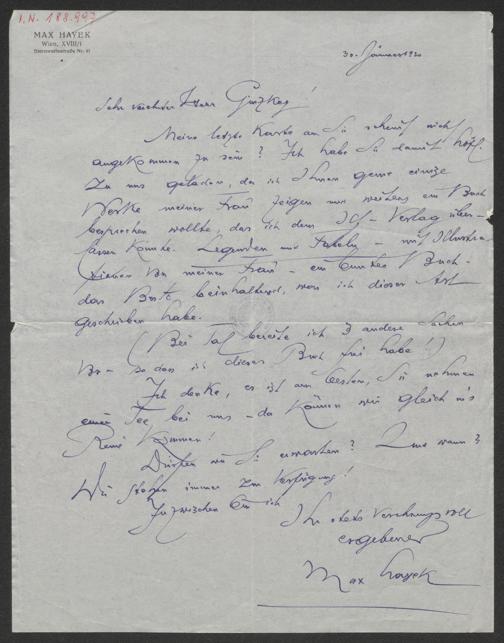 I.N. 188.997
MAX HAYEK
Wien, XVIII/1
Sternwartestraße Nr. 41
30. Jänner 1920
Sehr verehrter Herr Ginzkey!
Meine letzte Karte an Sie scheint nicht
angekommen zu sein? Ich habe Sie damit höfl.
zu uns geladen, da ich Ihnen gerne einige
Werke meiner Frau zeigen und weitens ein Buch
besprechen wollte, das ich dem Verlag über-
lassen könnte. Legenden und Fabeln – mit Illustra-
tionen von meiner Frau – ein buntes Buch –
das Beste beinhaltend, was ich dieser Art
geschrieben habe.
(Bei Tal bereite ich 3 andere Sachen
vor – so dass ich dieses Buch frei habe!)
Ich denke, es ist am besten, Sie nehmen
einen Tee bei uns – da können wir gleich ins
Reine kommen!
Dürfen wir Sie erwarten? Und wann?
Wir stehen immer zur Verfügung!
Inzwischen bin ich
Ihr stets verehrungsvoll
ergebener
Max Hayek